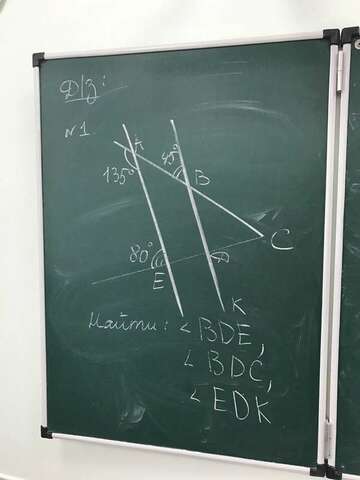 Д/з:
№1
A
135°
45°
B
C
80°
E
D
K
Найти: ∠BDE,
∠BDC,
∠EDK